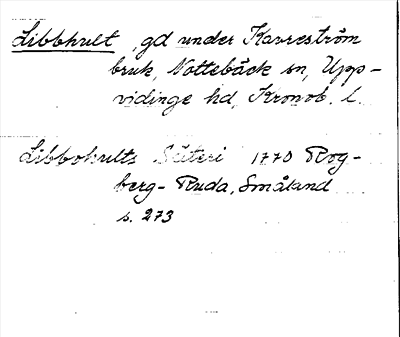 Libbhult, gd under Kavreström
bruk, Nottebäck sn, Upp-
vidinge hd, Kronob. l.
Libbohults Säteri 1770 Rog-
berg-Ruda, Småland
s. 273